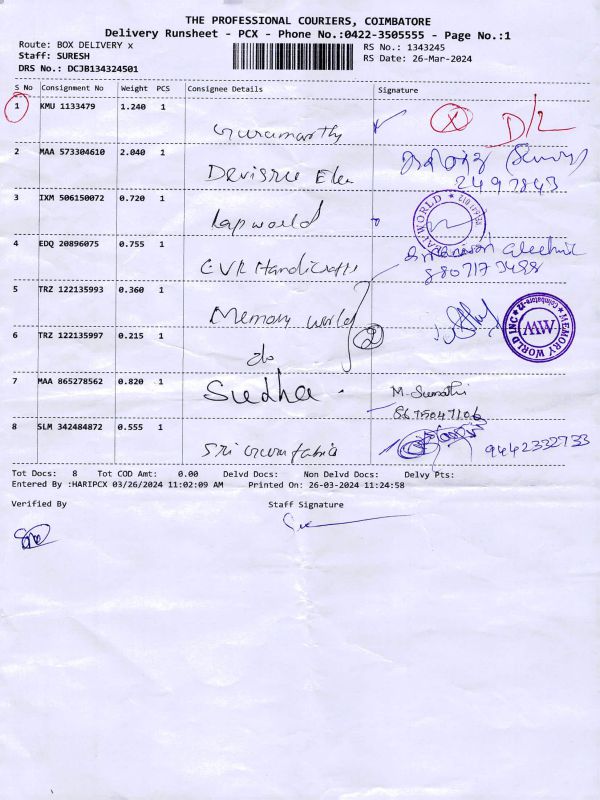 THE PROFESSIONAL COURIERS, COIMBATORE
Delivery Runsheet - PCX - Phone No.:0422-3505555 - Page No.:1
Route: BOX DELIVERY x
RS No.: 1343245
Staff: SURESH
RS Date: 26-Mar-2024
DRS No.: DCJB134324501
S No Consignment No Weight PCS Consignee Details Signature
1 KMU 1133479 1.240 1
Gurumurthy X D/L
2 MAA 573304610 2.040 1
Devisree Ele
2497843
3 IXM 506150072 0.720 1
Lapworld
4 EDQ 20896075 0.755 1
CVR Handicrafts
5 TRZ 122135993 0.360 1
Memory world
MEMORY WORLD INC
Coimbatore-12
MW
6 TRZ 122135997 0.215 1
do 2
7 MAA 865278562 0.820 1
Sudha. M. Sumathi
8675047106
8 SLM 342484872 0.555 1
Sri 9442332733
Tot Docs: 8 Tot COD Amt: 0.00 Delvd Docs: Non Delvd Docs: Delvy Pts:
Entered By :HARIPCX 03/26/2024 11:02:09 AM Printed On: 26-03-2024 11:24:58
Verified By Staff Signature